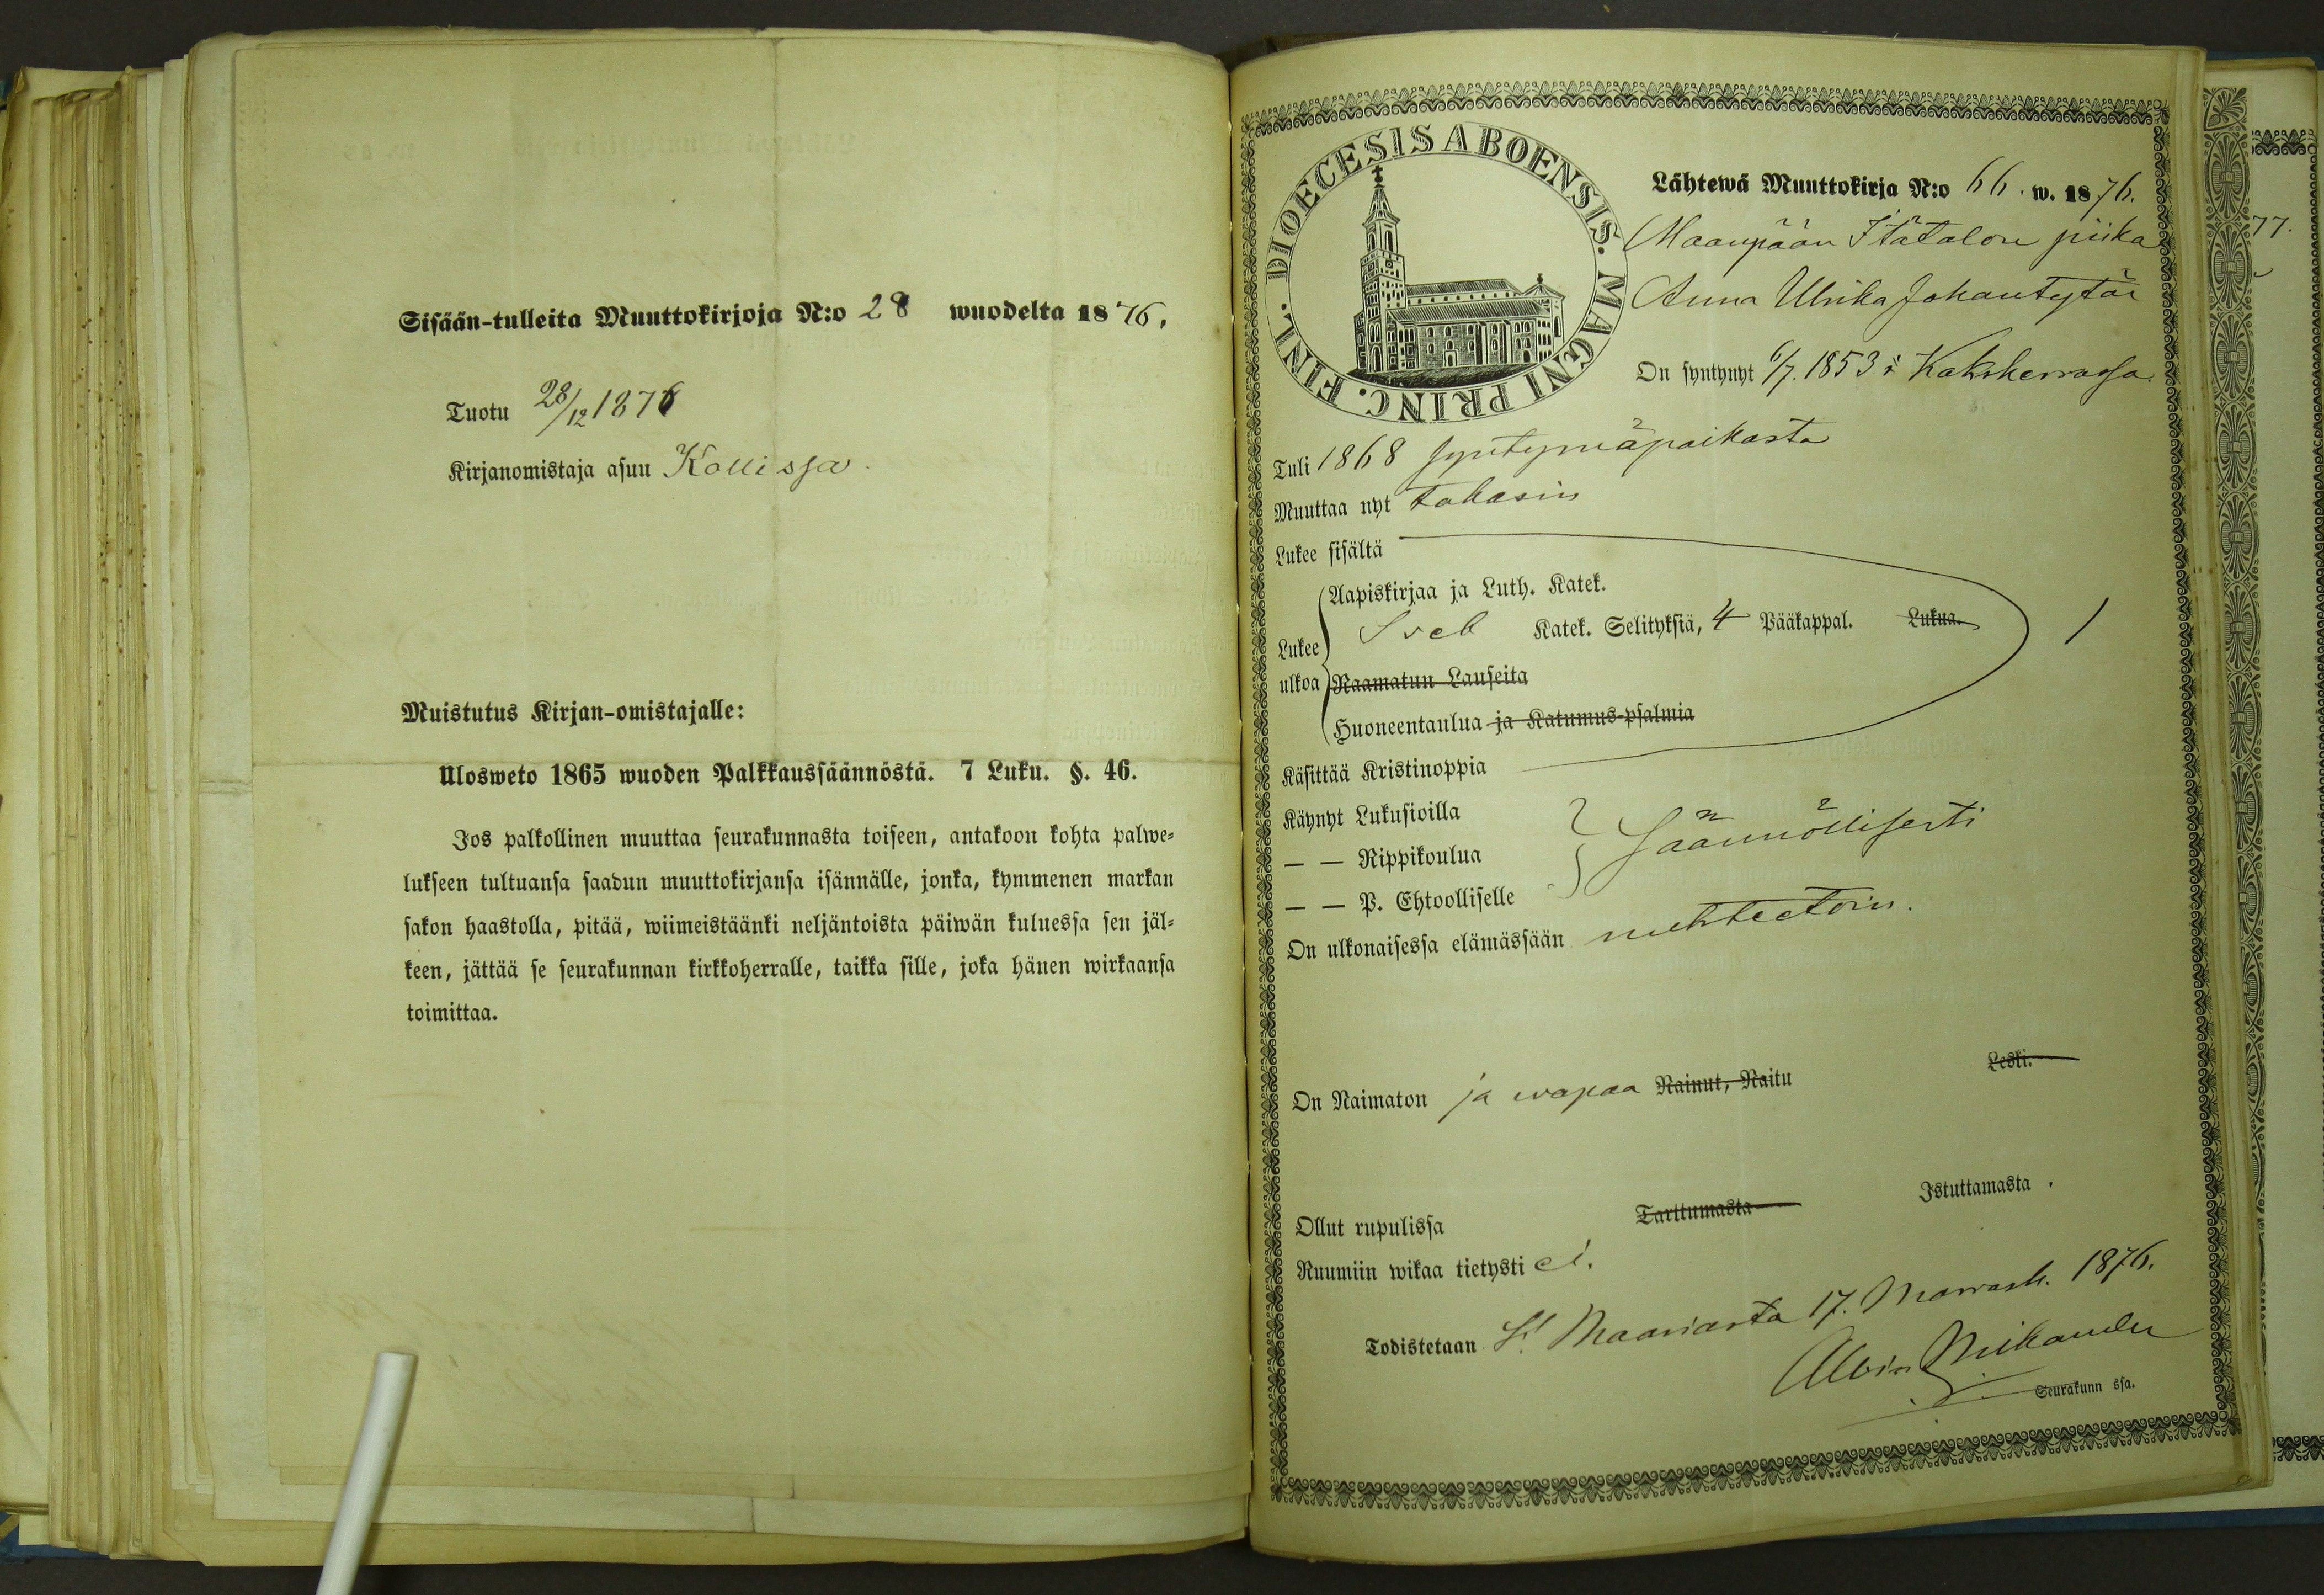 Sisään-tulleita Muuttokirjoja N:o 28 wuodelta 1876.
Tuotu 28/12 1876
Kirjanomistaja asuu Kollissa.
Muistutus Kirjan-omistajalle:
Ulosweto 1865 wuoden Palkkaussäännöstä. 7 Luku. §. 46.
Jos palkollinen muuttaa seurakunnasta toiseen, antakoon kohta palwe-
lukseen tultuansa saadun muuttokirjansa isännälle, jonka, kymmenen markan
sakon haastolla, pitää, wiimeistäänki neljäntoista päiwän kuluessa sen jäl-
keen, jättää se seurakunnan kirkkoherralle, taikka sille, joka hänen wirkaansa
toimittaa.
DIOECESIS ABOENSIS. MAGNI PRINC. FINL.
Lähtewä Muuttokirja N:o 66. w. 1876.
Maanpään Itätalon piika
Anna Ulrika Johantytär
On syntynyt 6/7. 1853 : Kakskerrassa.
Tuli 1868 syntymäpaikasta
Muuttaa nyt takasin
Lukee sisältä
Aapiskirjaa ja Luth. Katek.
Lukee Sveb Katek. Selityksiä, 4 Pääkappal. Lukua.
ulkoa Raamatun Lauseita
Huoneentaulua ja Katumus-psalmia
1
Käsittää Kristinoppia
Käynyt Lukusioilla
— — Rippikoulua Säännöllisesti
— — P. Ehtoolliselle
On ulkonaisessa elämässään nuhteetoin.
On Naimaton ja wapaa Nainut, Naitu Leski.
Ollut rupulissa Tarttumasta Istuttamasta.
Ruumiin wikaa tietysti ei.
Todistetaan St Maariasta 17. Marrask. 1876.
Albin Mikander
Seurakunn ssa.
77.